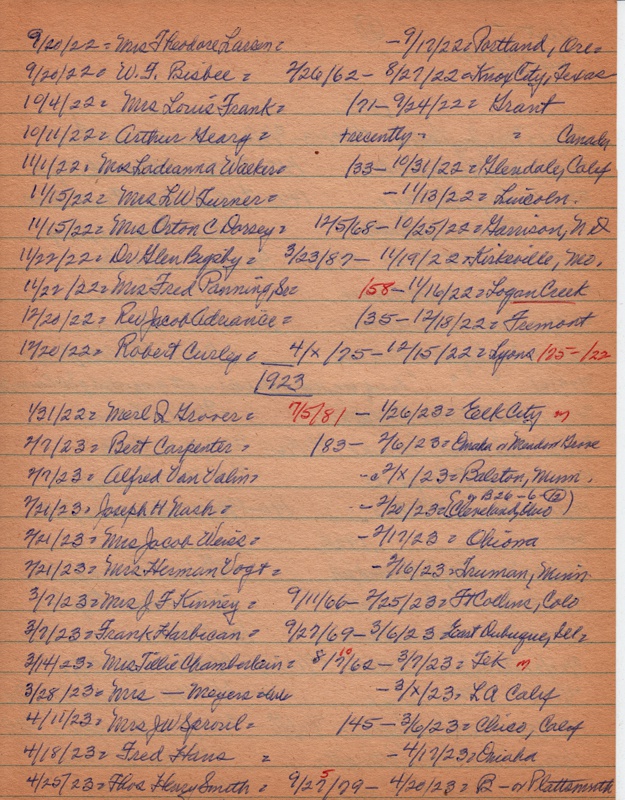 9/20/22 = Mrs Theodore Larsen = - 9/17/22 = Portland, Ore
9/20/22 = W.F. Bisbee = 2/26/62 - 8/27/22 = Knox City, Texas
10/4/22 = Mrs Louis Frank = /71 - 9/24/22 = Grant
10/11/22 = Arthur Geary = + recently - " Canada
11/1/22 = Mrs Ladeanna Weeker = /33 - 10/31/22 = Glendale, Calif
11/15/22 = Mrs L W Turner = - 11/13/22 = Lincoln.
11/15/22 = Mrs Orton C Dorsey = 12/5/68 - 10/25/22 = Garrison, N D
11/22/22 = Dr Glen Bigsby = 3/23/87 - 11/19/22 = Kirksville, Mo.
11/22/22 = Mrs Fred Panning Sr = /58 - 11/16/22 = Logan Creek
12/20/22 = Rev Jacob Adriance = /35 - 12/18/22 = Fremont
12/20/22 = Robert Curley = 4/x/75 - 12/15/22 = Lyons /75 - /22
1923
1/31/22 = Merl D Grover = 7/5/81 - 1/26/23 = Elk City m
2/7/23 = Bert Carpenter = /83 - 2/6/23 = Omaha or Meadow Grove
2/7/23 = Alfred Van Valin = - 2/x/23 = Balston, Minn.
2/21/23 = Joseph H Nash = - 2/20/23 = (Cleveland, Ohio)
2/21/23 = Mrs Jacob Weiss = - 2/17/23 = Ohiowa
2/21/23 = Mrs Herman Vogt = - 2/16/23 = Truman, Minn.
3/7/23 = Mrs J F Kinney = 9/11/66 - 2/25/23 = Ft Collins, Colo
3/7/23 = Frank Harbican = 9/27/69 - 3/6/23 = East Dubuque, Ill =
3/14/23 = Mrs Tillie Chamberlain = 8/7/62 - 3/7/23 = Tek m
3/28/23 = Mrs — Meyers - 3/x/23 = LA Calif
4/11/23 = Mrs J W Sproul = /45 - 3/6/23 = Chico, Calif
4/18/23 = Fred Hans = - 4/17/23 = Omaha
4/25/23 = Thos Henry Smith = 9/27/79 - 4/20/23 = B - or Plattsmouth